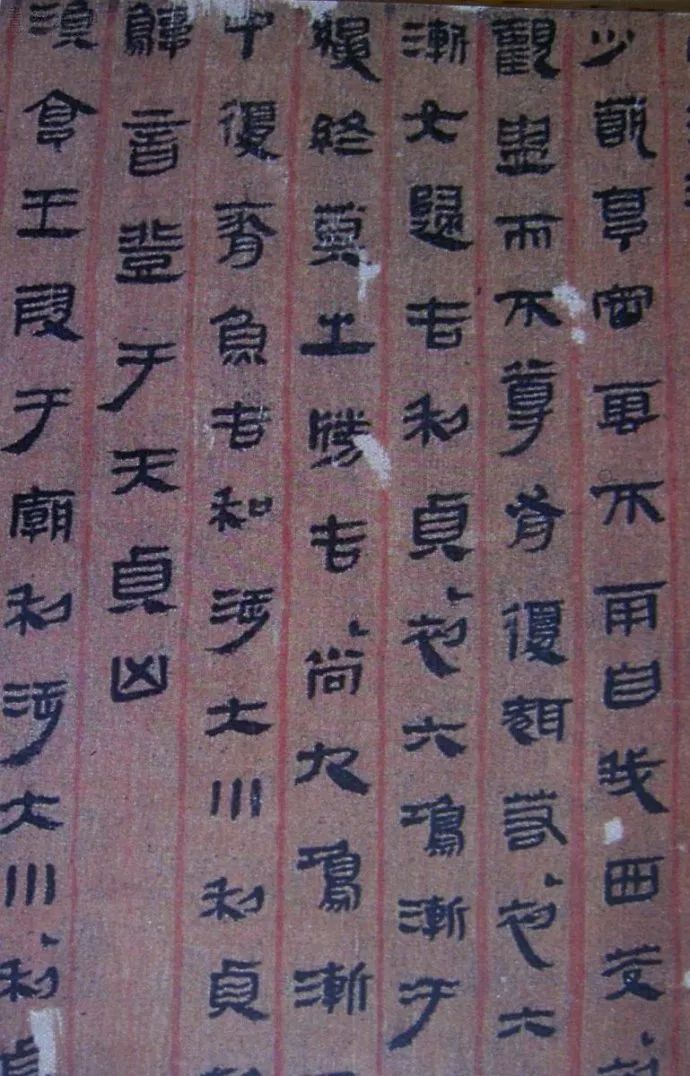 少亨密雲不雨自我西茭
觀盥而不尊有復若初六
漸女歸吉利貞初六鳿漸于
終莫之勝吉尚九鳿漸
中復魚吉和涉大川利貞
音登于天貞凶
渙亨王叚于廟利涉大川利貞